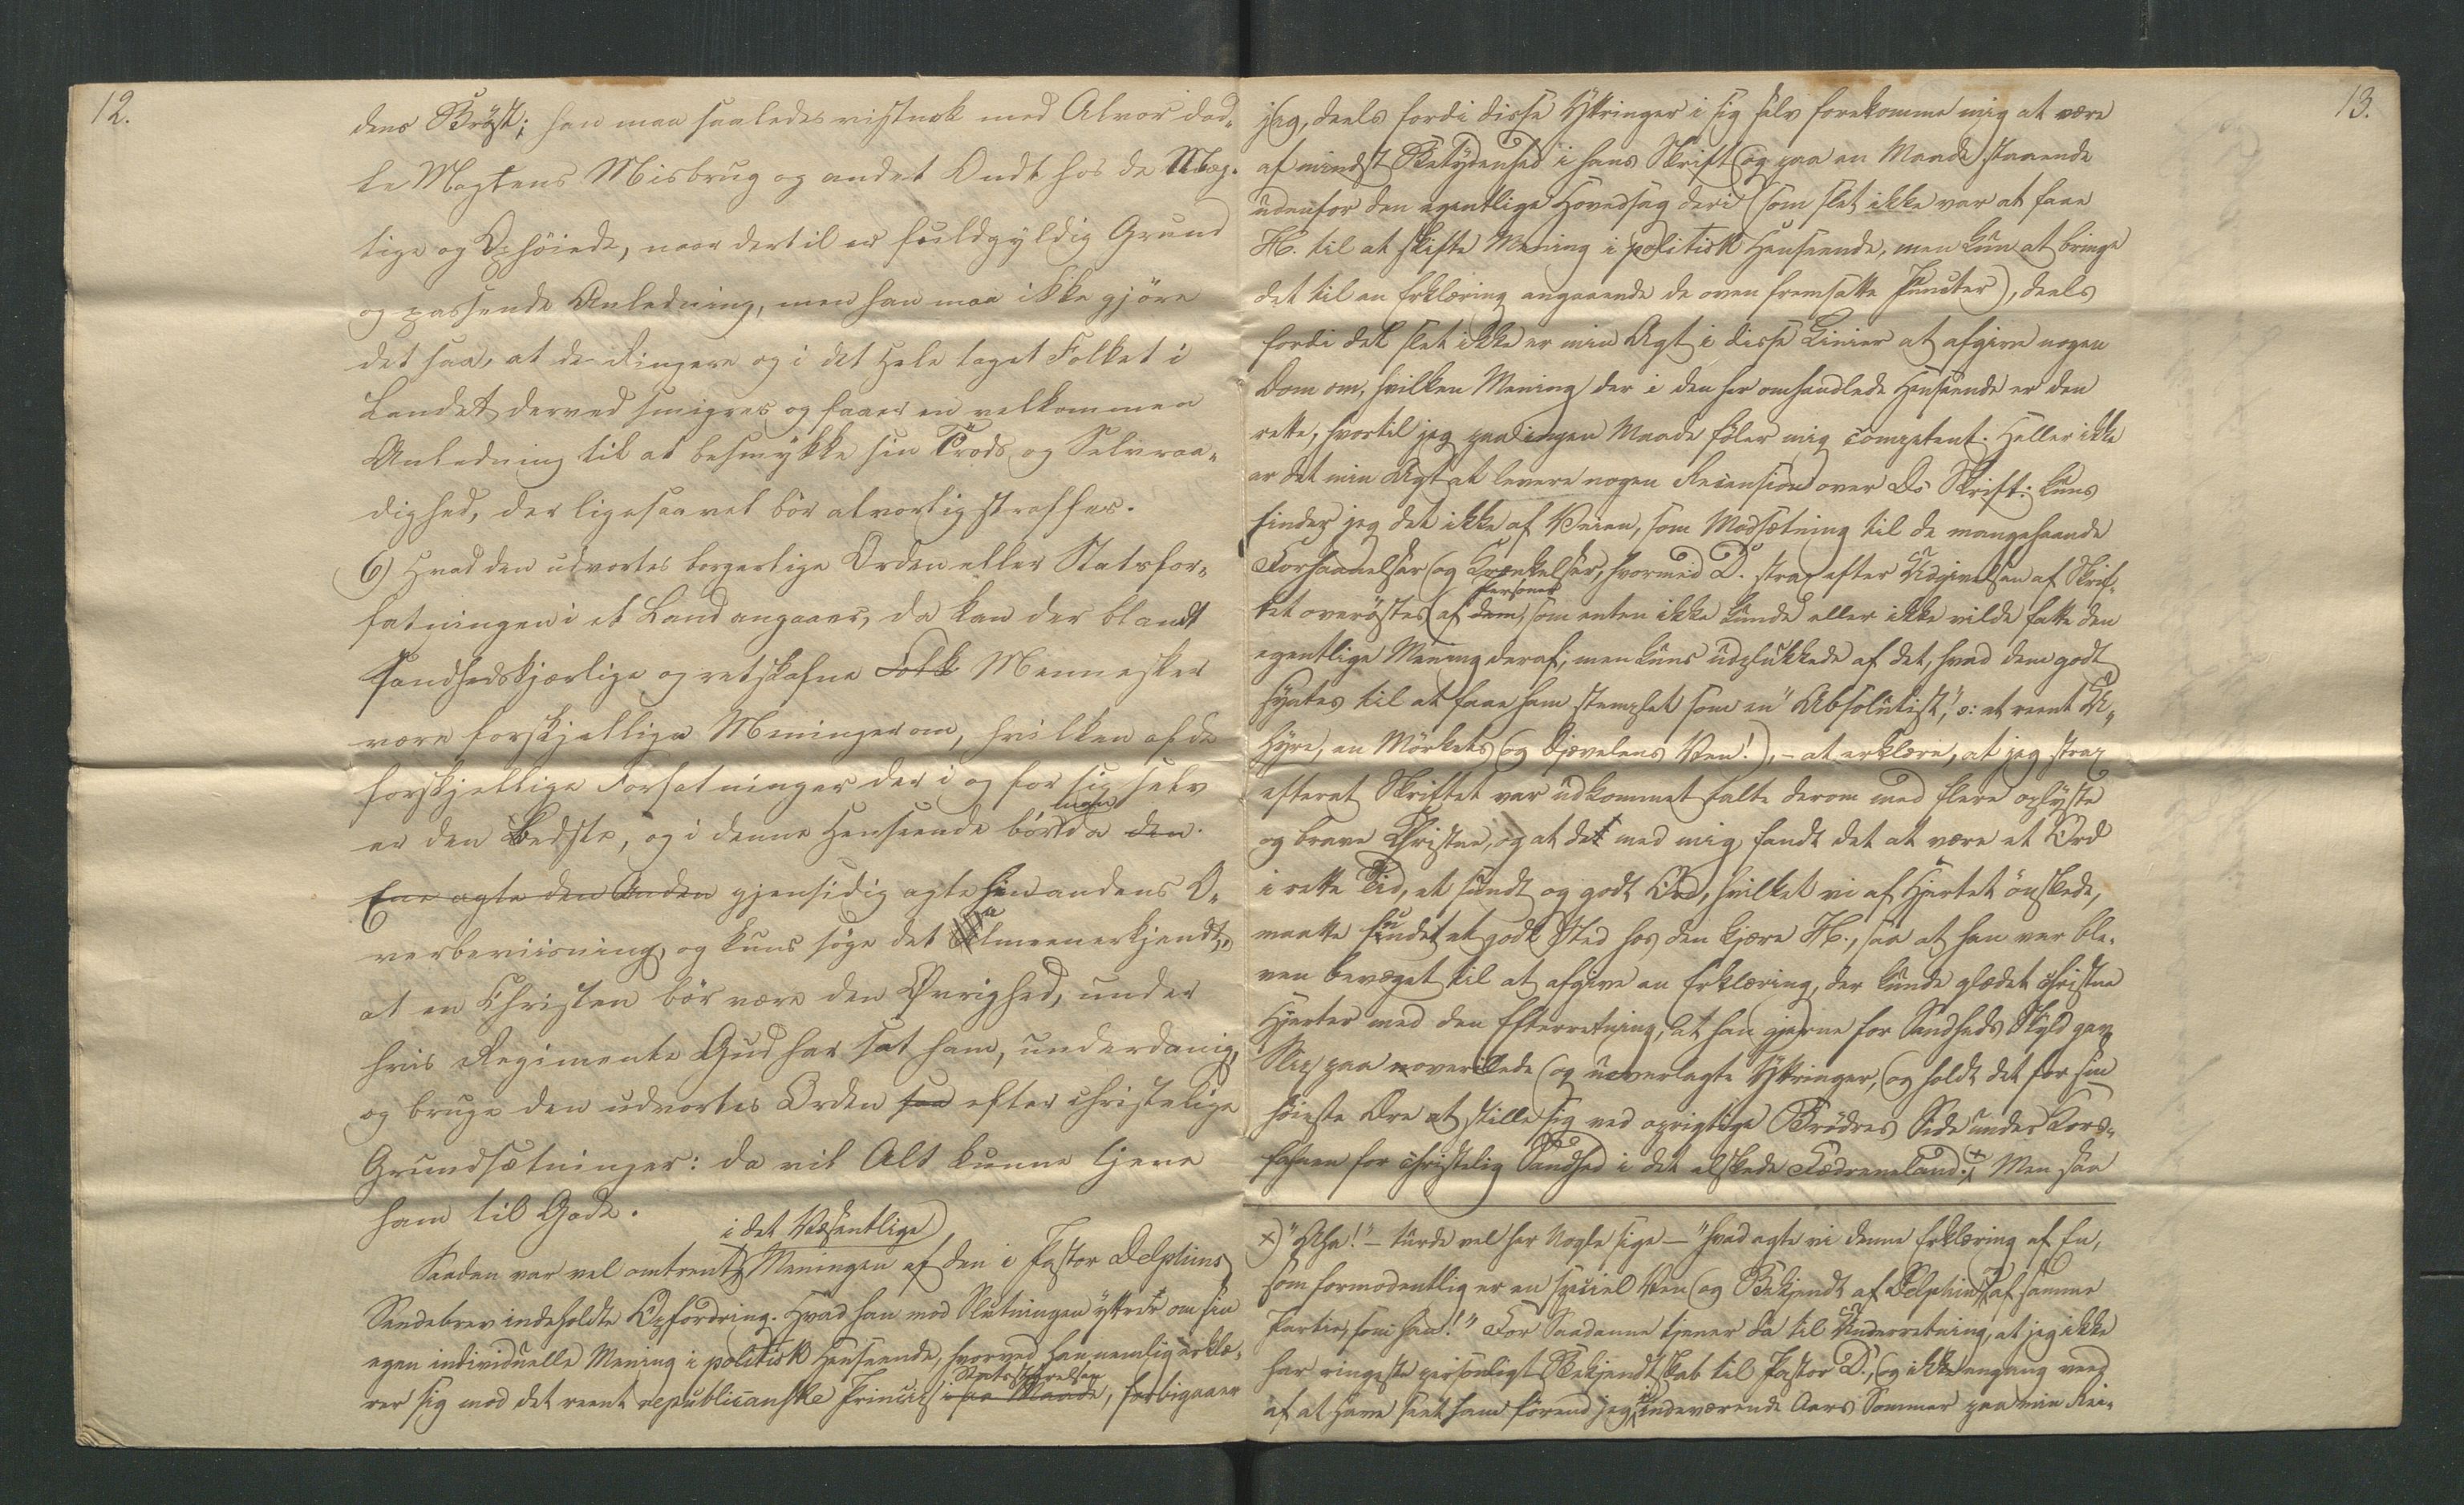 12.
dens Bröst; han maa saaledes vistnok med Alvor dad-
le Magtens Misbrug og andet Ondt hos de Mæg-
tige og Ophöiede, naar dertil er fuldgyldig Grund
og passende Anledning, men han maa ikke gjöre
det saa, at de Ringere og i det Hele taget Folket i
Landet derved smigres og faaer en velkommen
Anledning til at besmykke sin Trods og Selvraa-
dighed, der ligesaavel bör alvorlig straffes.
6) Hvad den udvortes borgerlige Orden eller Statsfor-
fatningen i et Land angaaer, da kan der blandt
sandhedskjærlige og retskafne Folk Mennesker
være forskjellige Meninger om, hvilken af de
forskjellige Forfatninger der i og for sig selv
er den Bedste, og i denne Henseende bör man da den
Ene agte den Anden gjensidig agte hinandens O-
verbeviisning, og kuns söge det Almeenerkjendt,
at en Christen bör være den Øvrighed, under
hvis Regimente Gud har sat ham, underdanig,
og bruge den udvortes Orden saa efter christelige
Grundsætninger: da vil Alt kunne tjene
ham til Gode.
i det Væsentlige
Saadan var vel omtrent Meningen af den i Pastor Delphins
Sendebrev indeholdte Opfordring. Hvad han mod Slutningen yttrer om sin
egen individuelle Mening i politisk Henseende, hvorved han nemlig erklæ-
Statsstyrelsen
rer sig mod det reent republicanske Princip i paa Maade, forbigaaer
13.
jeg, deels fordi disse Yttringer i sig selv forekomme mig at være
af mindst Betydenhed i hans Skrift og paa en Maade staaende
udenfor den egentlige Hovedsag deri (som slet ikke var at faae
H. til at skifte Mening i politisk Henseende, men kun at bringe
det til en Erklæring angaaende de oven fremsatte Puncter), deels
fordi det slet ikke er min Agt i disse Linier at afgive nogen
Dom om, hvilken Mening der i den her omhandlede Henseende er den
rette, hvortil jeg paa ingen Maade föler mig competent. Heller ikke
er det min Agt at levere nogen Recension over Ds Skrift; kuns
finder jeg det ikke af Veien, som Modsætning til de mangehaande
Forhaanelser og Krænkelser, hvormed D. strax efter Udgivelsen af Skrif-
Personer
tet overöstes af dem, som enten ikke kunde eller ikke vilde fatte den
egentlige Mening deraf, men kuns udplukkede af det, hvad dem godt
syntes til at faae ham stemplet som en "Absolutist," ɔ: et reent U-
hyre, en Mörkets og Djævelens Ven!), – at erklære, at jeg strax
efterat Skriftet var udkommet talte derom med flere oplyste
og brave Christne, og at de med mig fandt det at være et Ord
i rette Tid, et sundt og godt Ord, hvilket vi af Hjertet önskede,
maatte fundet et godt Sted hos den kjære H., saa at han var ble-
ven bevæget til at afgive en Erklæring, der kunde glædet christne
Hjerter med den Efterretning, at han gjerne for Sandheds Skyld gav
Slip paa overilede og uoverlagte Yttringer, og holdt det for sin
höieste Ære at stille sig ved oprigtige Brödres Side under Kors-
fahnen for christelig Sandhed i det elskede Fædreneland. x) Men saa
x) "Aha!" – turde vel her Nogle sige – "hvad agte vi denne Erklæring af En,
som formodentlig er en speciel Ven og Bekjendt af Delphin, af samme
Partie, som han!" For Saadanne tjener da til Underretning, at jeg ikke
har ringeste personligt Bekjendtskab til Pastor D., og ikke engang veed
af at have seet ham förend jeg i indeværende Aars Sommer paa min Rei-